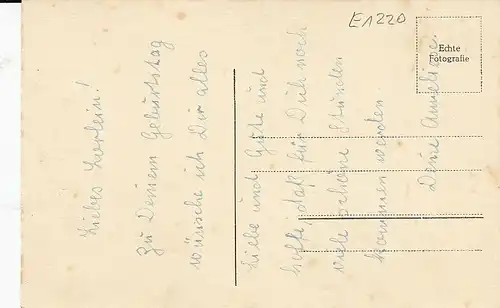 Liebes Lorlein!
Zu Deinem Geburtstag
wünsche ich Dir alles
Liebe und Gute und
hoffe, daß für Dich noch
viele schöne Stunden
kommen werden.
Deine Anneliese.
E1220
Echte
Fotografie